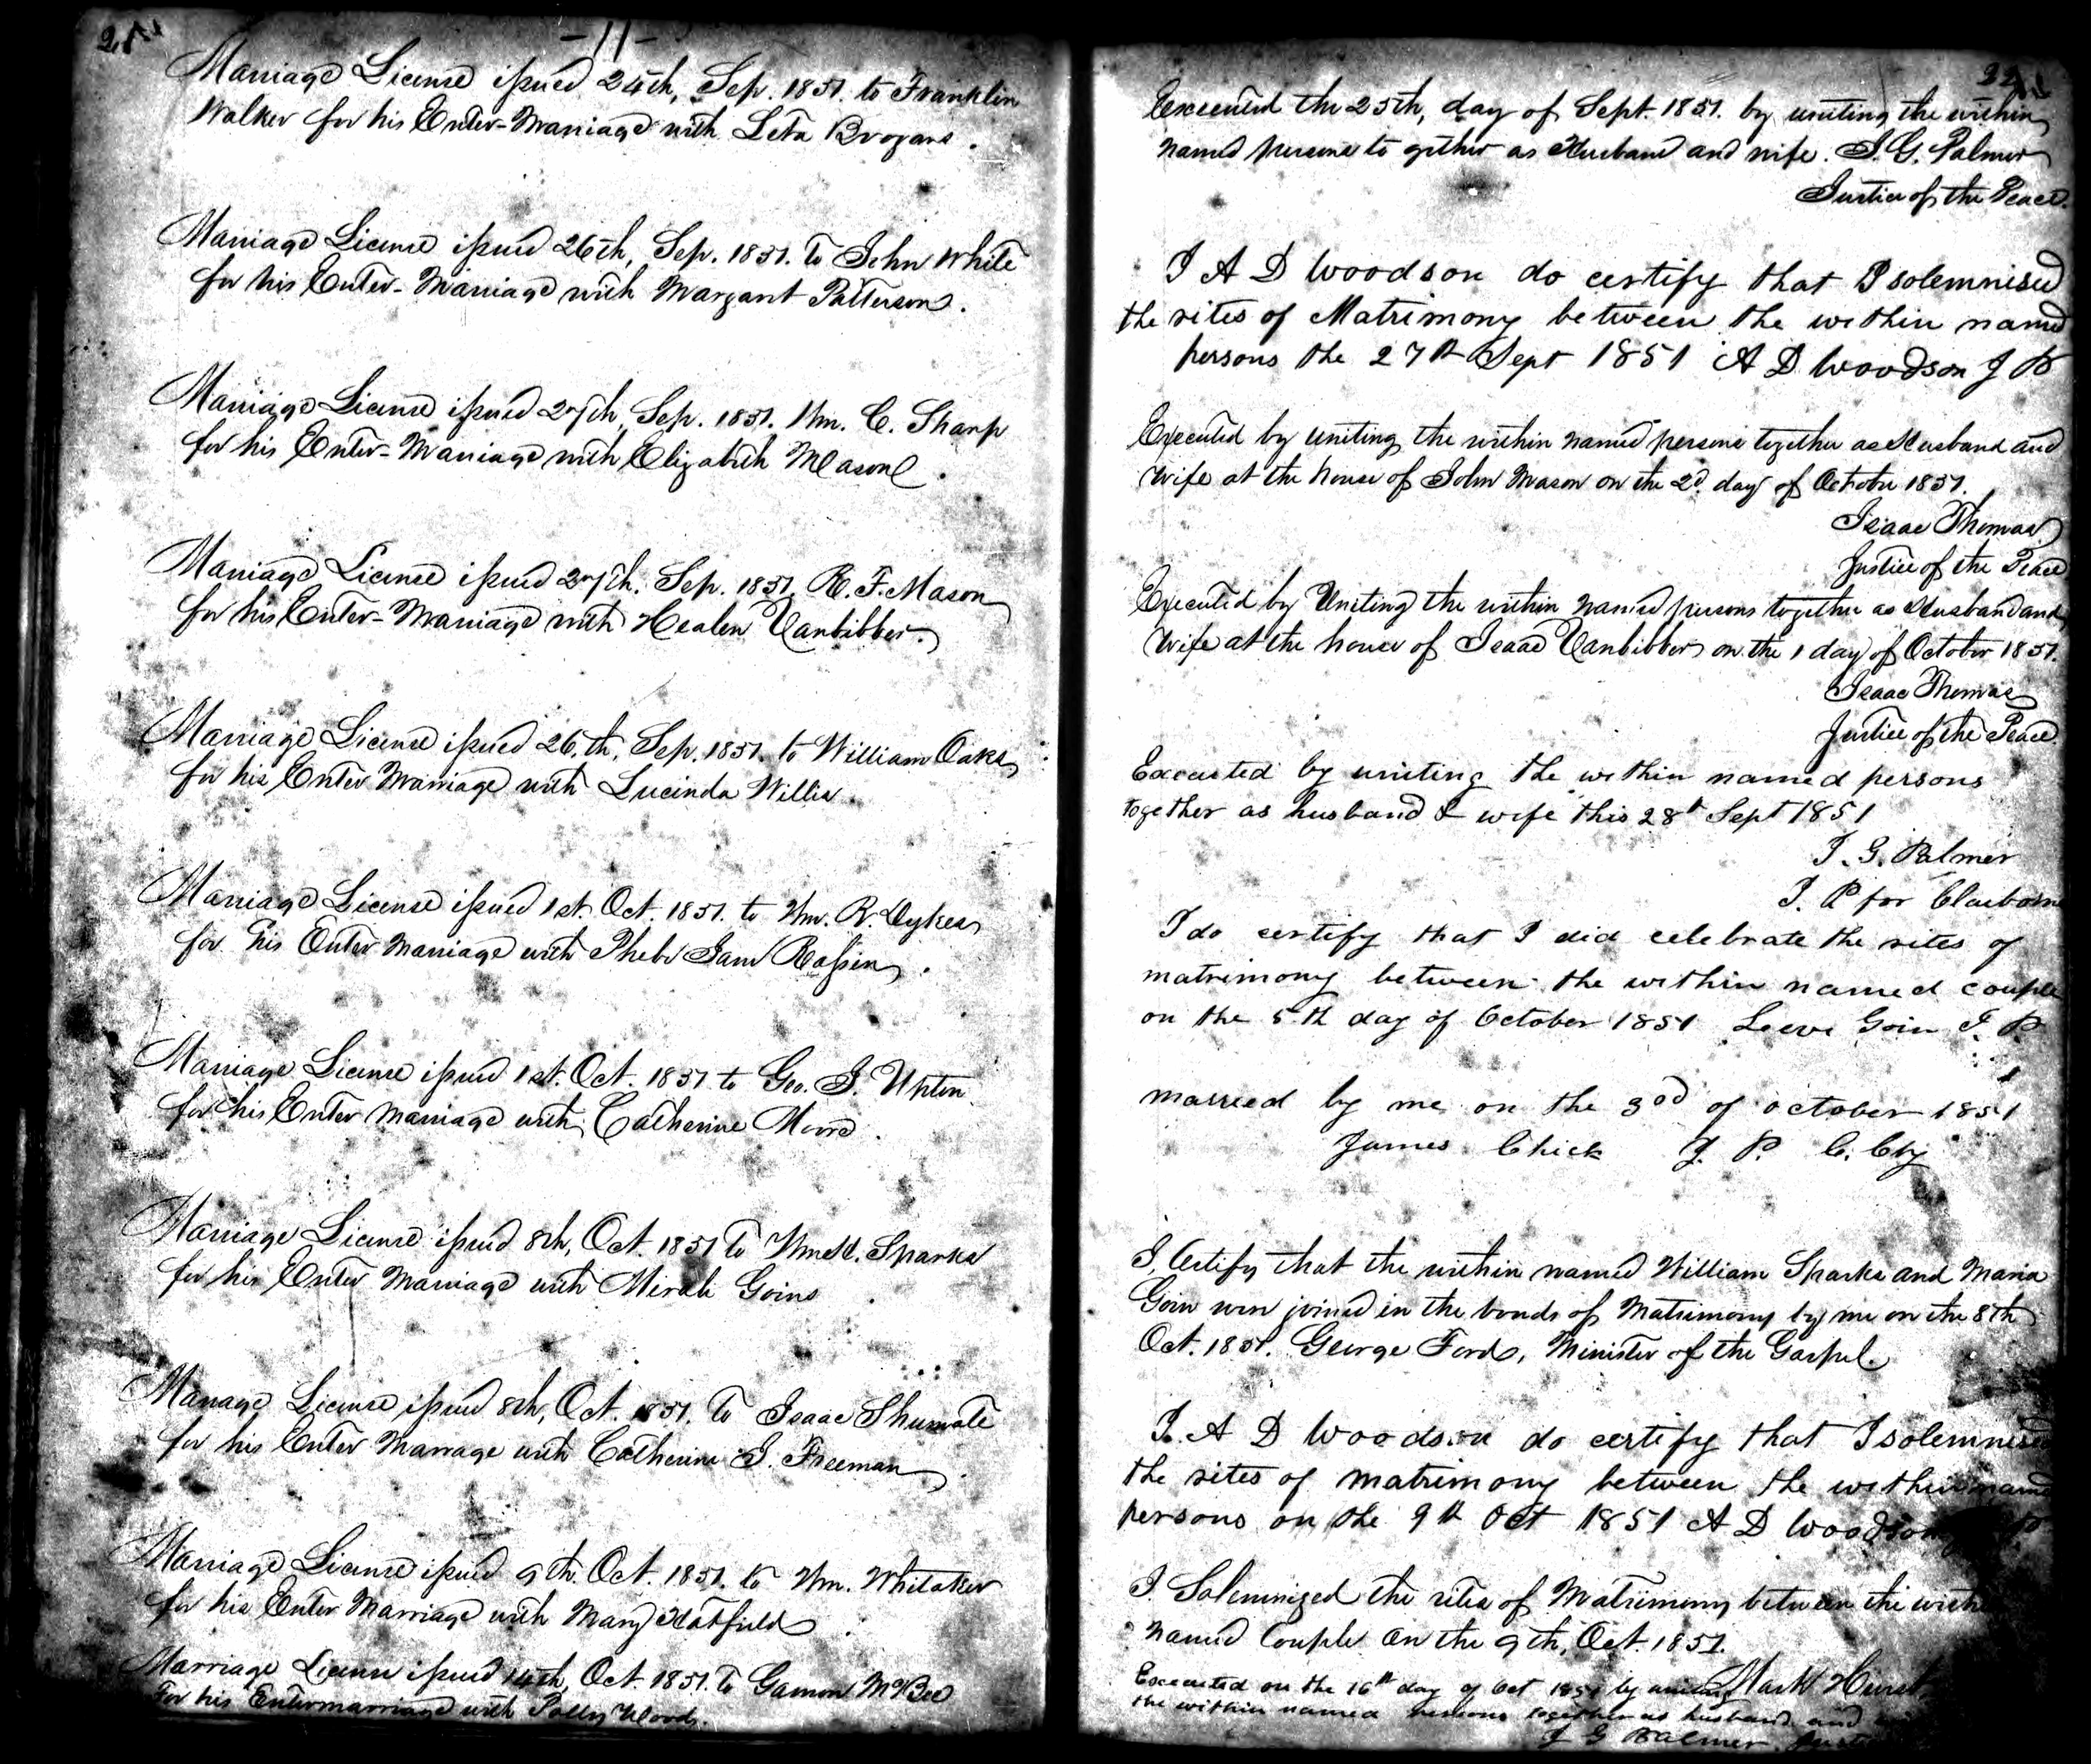 -11-
Marriage License issued 24th, Sep. 1851. to Franklin
Walker for his Enter-Marriage with Leta Brogans.
Marriage License issued 26th, Sep. 1851. to John White
for his Enter-Marriage with Margant Patterson.
Marriage License issued 27th, Sep. 1851. Wm. C. Sharp
for his Enter-Marriage with Elizabeth Mason.
Marriage License issued 27th. Sep. 1851. R. F. Mason
for his Enter-Marriage with Healen Vanbibber.
Marriage License issued 26.th, Sep. 1851. to William Oaks
for his Enter Marriage with Lucinda Willis.
Marriage License issued 1st. Oct. 1851. to Wm. R. Dykes
for his Enter Marriage with Phebe Jane
Marriage License issued 1st. Oct. 1851 to Geo. J. Upton
for his Enter Marriage with Catherine Moore.
Marriage License issued 8th, Oct. 1851 to Sparks
for his Enter Marriage with Mirah Goins
Marriage License issued 8th, Oct. 1851. to Isaac Shumate
for his Enter Marriage with Catherine J. Freeman
Marriage License issued 9th. Oct. 1851. to Wm. Whitaker
for his Enter Marriage with Mary Hatfield
Marriage License issued 14th, Oct. 1851. to Gamon McBee
For his Entermarriage with Polly Woods.
Executed the 25th, day of Sept. 1851. by uniting the within
named persons to gether as Husband and wife. J. G. Palmer
Justice of the Peace.
I A D Woodson do certify that I solemnised
the rites of Matrimony between the within named
persons the 27th Sept 1851 A D Woodson J P
Executed by uniting the within named persons together as Husband and
Wife at the house of John Mason on the 2d. day of October 1851.
Isaac Thomas
Justice of the Peace
Executed by Uniting the within named persons together as Husband and
Wife at the house of Isaac Vanbibber on the 1 day of October 1851.
Isaac Thomas
Justice of the Peace
Executed by uniting the within named persons
together as husband & wife this 28th Sept 1851
J. G. Palmer
J. P for Claiborne
I do certify that I did celebrate the rites of
matrimony between the within named couple
on the 5th day of October 1851 Leeve Goin J. P.
married by me on the 3rd of october 1851
James Chick J. P. C. Cty
I, Certify that the within named William Sparks and Maria
Goin were joined in the bonds of Matrimony by me on the 8th
Oct. 1851. George Ford, Minister of the Gospel.
I. A D Woodson do certify that I solemnised
the rites of matrimony between the within named
persons on the 9th Oct 1851 A D Woodson
I. Solemnized the rites of Matrimony between the within
named Couple on the 9th, Oct. 1851.
Mark Hurst
Executed on the 16th day of Oct 1851 by uniting
the within named persons together as husband and
J G Palmer